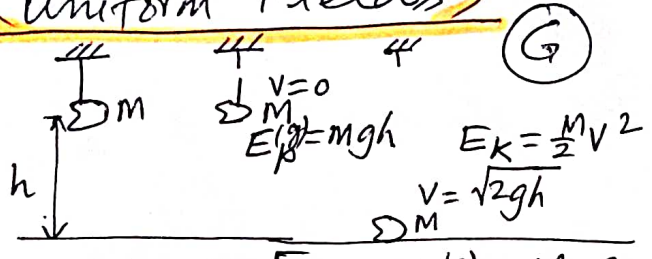 (Uniform Fields)
G
M
V=0
M
E_p^(g)=mgh
E_K = M/2 V^2
h
V= √2gh
M